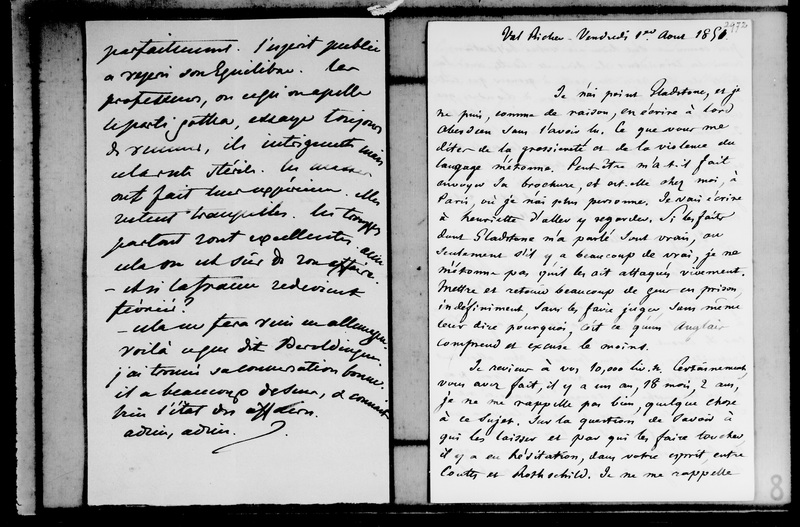 parfaitement. l'esprit public
a repris son équilibre. Les
professeurs, ou ce qu'on appelle
le parti gotha, essaye toujours
de remuer, ils intriguent mais
cela reste stérile. les masses
ont fait leur expérience. Elles
restent tranquilles. les troupes
partout sont excellentes, avec
cela on est sûr de son affaire.
- et si la france redevient
février?
- cela ne fera rien en allemagne.
voilà ce que dit Beroldingen.
j'ai trouvé sa conversation bonne.
il a beaucoup de sens, & connait
bien l'état des affaires.
adieu, adieu.
2972
Val Richer - Vendredi 1er Août 1851
Je n'ai point Gladstone, et je
ne puis, comme de raison, en écrire à lord
Aberdeen sans l'avoir lu. Ce que vous me
dites de la grossièreté et de la violence du
langage m'étonne. Peut-être m'a-t-il fait
envoyer sa brochure, et est-elle chez moi, à
Paris, où je n'ai plus personne. Je vais écrire
à henriette d'aller y regarder. Si les faits
dont Gladstone m'a parlé sont vrais, ou
seulement s'il y a beaucoup de vrai, je ne
m'étonne pas qu'il les ait attaqués vivement.
Mettre et retenir beaucoup de gens en prison,
indéfiniment, sans les faire juger, sans même
leur dire pourquoi, c'est ce qu'un Anglais
comprend et excuse le moins.
Je reviens à vos 10,000 liv. st. Certainement
vous avez fait, il y a un an, 18 mois, 2 ans,
je ne me rappelle pas bien, quelque chose
à ce sujet. Sur la question de savoir à
qui les laisser et par qui les faire toucher
il y a eu hésitation, dans votre esprit, entre
Coutts et Rothschild. Je ne me rappelle
8